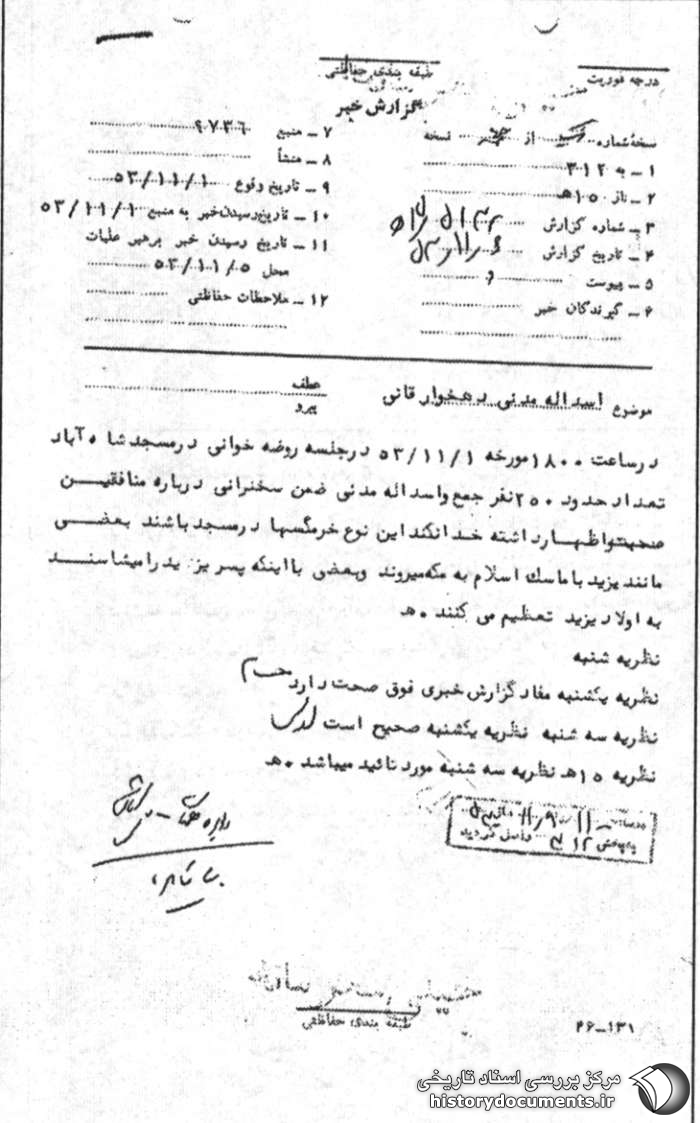 درجه فوریت
طبقه بندی حفاظتی
گزارش خبر
نسخهٔ شماره از نسخه
۱ ـ به ۳۱۲
۲ ـ از ۱۵۰هـ
۳ ـ شماره گزارش
۴ ـ تاریخ گزارش
۵ ـ پیوست
۶ ـ گیرندگان خبر
۷ ـ منبع ۲۷۳۶
۸ ـ منشأ
۹ ـ تاریخ وقوع ۵۳/۱۱/۱
۱۰ ـ تاریخ رسیدن خبر به منبع ۵۳/۱۱/۱
۱۱ ـ تاریخ رسیدن خبر برهبر عملیات
محل ۵۳/۱۱/۵
۱۲ ـ ملاحظات حفاظتی
موضوع اسداله مدنی دهخوارقانی
عطف
پیرو
در ساعت ۱۸۰۰ مورخه ۵۳/۱۱/۱ در جلسه روضه خوانی در مسجد شاه آباد
تعداد حدود ۲۵۰ نفر جمع و اسداله مدنی ضمن سخنرانی درباره منافقین
صحبت و اظهار داشته خدا نکند این نوع خرمگسها در مسجد باشند بعضی
مانند یزید با ماسک اسلام به مکه میروند وبعضی با اینکه پسر یزید را میشناسند
به اولاد یزید تعظیم می کنند ۰ هـ
نظریه شنبه
نظریه یکشنبه مفاد گزارش خبری فوق صحت دارد
نظریه سه شنبه نظریه یکشنبه صحیح است
نظریه ۱۵هـ نظریه سه شنبه مورد تائید میباشد ۰ هـ
واصل گردید
طبقه بندی حفاظتی
۲۶-۱۳۱
مرکز بررسی اسناد تاریخی
historydocuments.ir